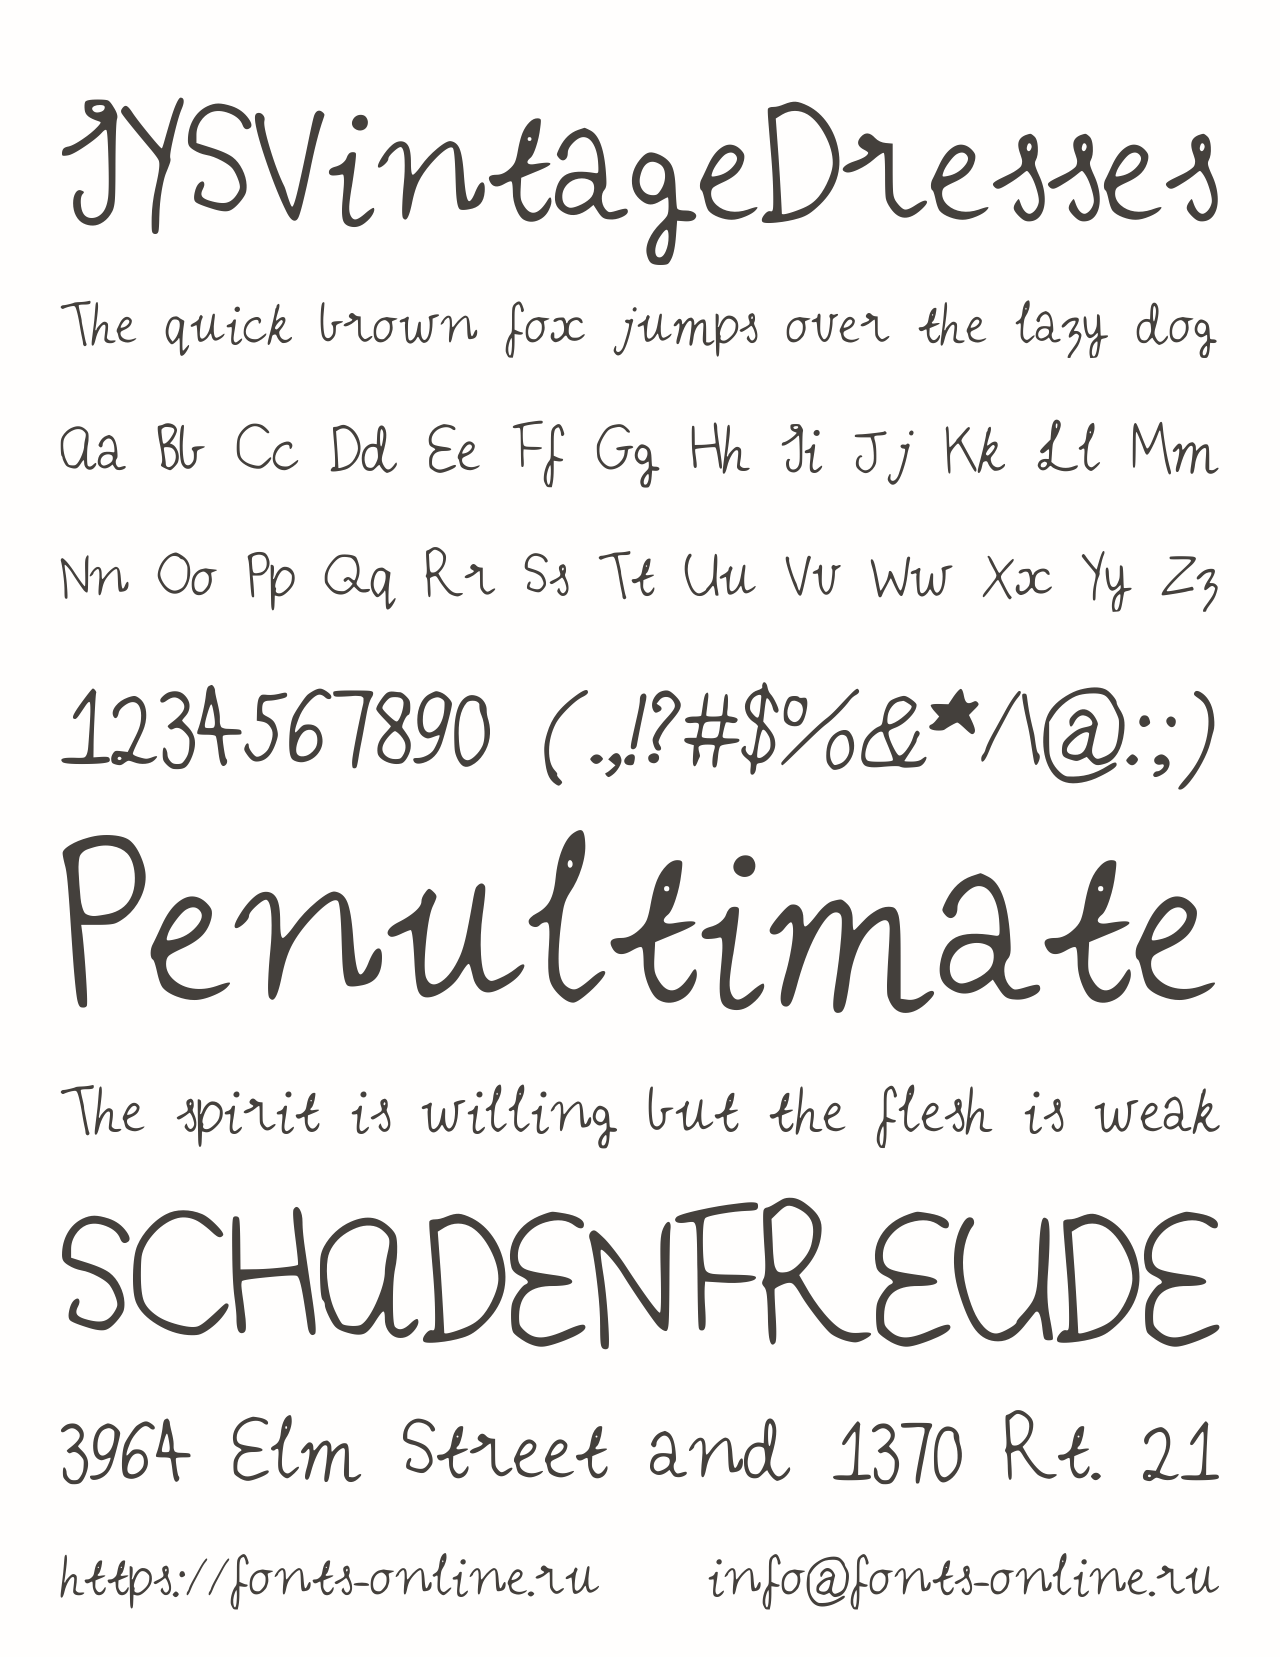 IYSVintageDresses
The quick brown fox jumps over the lazy dog
Aa Bb Cc Dd Ee Ff Gg Hh Ii Jj Kk Ll Mm
Nn Oo Pp Qq Rr Ss Tt Uu Vv Ww Xx Yy Zz
1234567890 (.,!?#$%&*/\@:;)
Penultimate
The spirit is willing but the flesh is weak
SCHADENFREUDE
3964 Elm Street and 1370 Rt. 21
https://fonts-online.ru info@fonts-online.ru